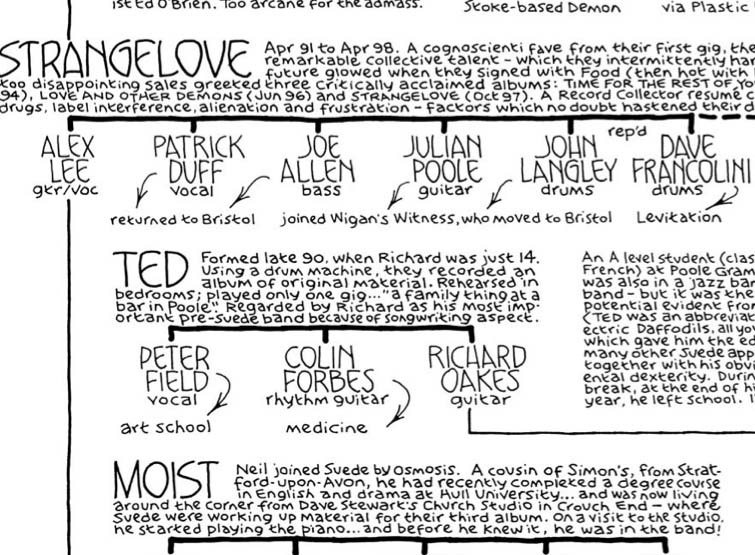 ist Ed O'Brien. Too arcane for the admass.
Stoke-based Demon
via Plastic
STRANGELOVE
Apr 91 to Apr 98. A cognoscenti fave from their first gig, the
remarkable collective talent - which they intermittently har
future glowed when they signed with Food (then hot with
too disappointing sales greeted three critically acclaimed albums: TIME FOR THE REST OF YO
94), LOVE AND OTHER DEMONS (Jun 96) and STRANGELOVE (Oct 97). A Record Collector resume c
drugs, label interference, alienation and frustration - factors which no doubt hastened their d
rep'd
ALEX LEE
gtr/voc
PATRICK DUFF
vocal
JOE ALLEN
bass
JULIAN POOLE
guitar
JOHN LANGLEY
drums
DAVE FRANCOLINI
drums
returned to Bristol
joined Wigan's Witness, who moved to Bristol
Levitation
TED
Formed late 90, when Richard was just 14.
Using a drum machine, they recorded an
album of original material. Rehearsed in
bedrooms; played only one gig... "a family thing at a
bar in Poole". Regarded by Richard as his most imp-
ortant pre-Suede band because of songwriting aspect.
PETER FIELD
vocal
COLIN FORBES
rhythm guitar
RICHARD OAKES
guitar
art school
medicine
An A level student (clas
French) at Poole Gram
was also in a jazz bar
band - but it was the
potential evident from
(TED was an abbreviat
ectric Daffodils, all yo
which gave him the ed
many other Suede app
together with his obvi
ental dexterity. Durin
break, at the end of hi
year, he left school. I
MOIST
Neil joined Suede by osmosis. A cousin of Simon's, from Strat-
ford-upon-Avon, he had recently completed a degree course
in English and drama at Hull University... and was now living
around the corner from Dave Stewart's Church Studio in Crouch End - where
Suede were working up material for their third album. On a visit to the studio,
he started playing the piano... and before he knew it, he was in the band!